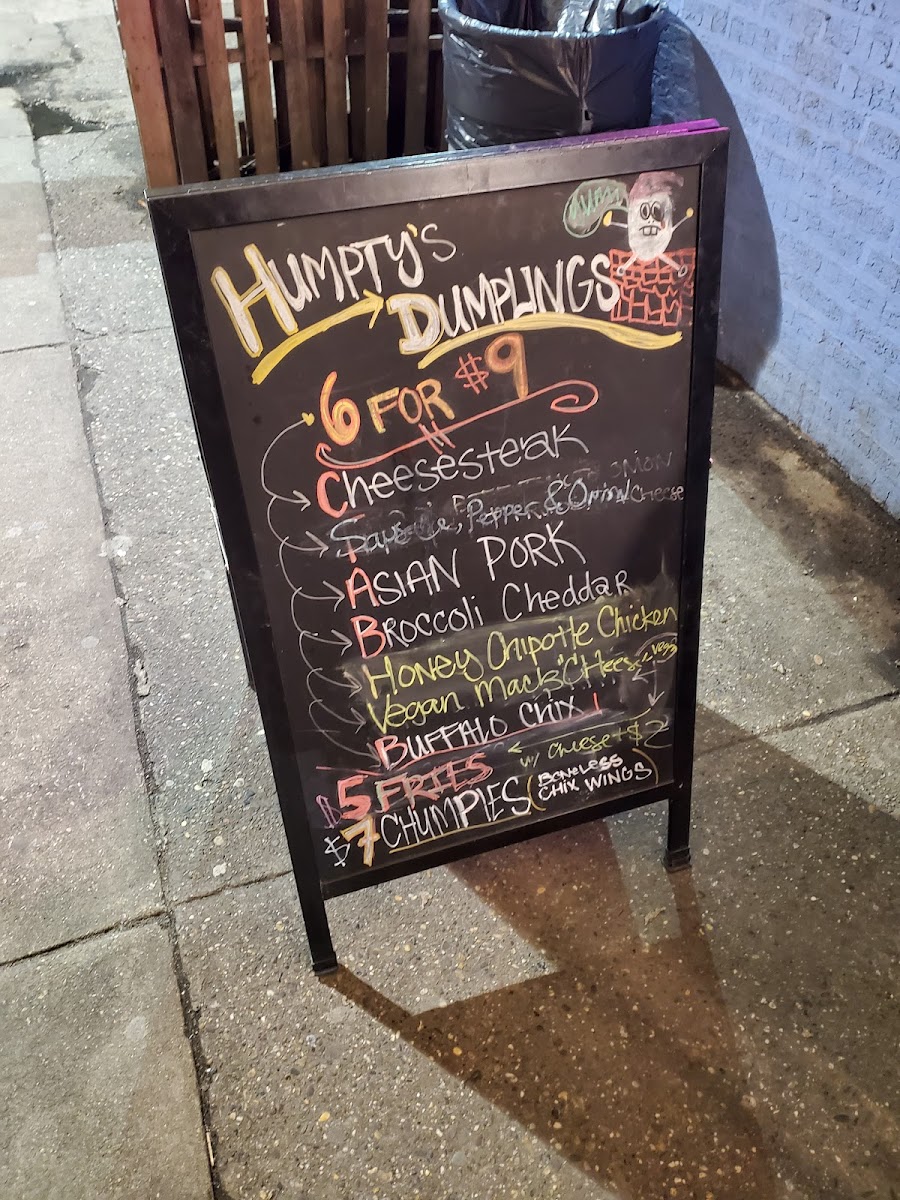 HUMPTY'S
DUMPLINGS
6 FOR $9
Cheesesteak
Sausage, Pepper & Onion/Cheese
ASIAN PORK
BROCCOLI CheddaR
HONEY Chipotle Chicken
Vegan Mac & CHeese
BUFFALO CHIX
w/ cheese + $2
$5 FRIES
$7 CHUMPIES (BONELESS
CHIX WINGS)